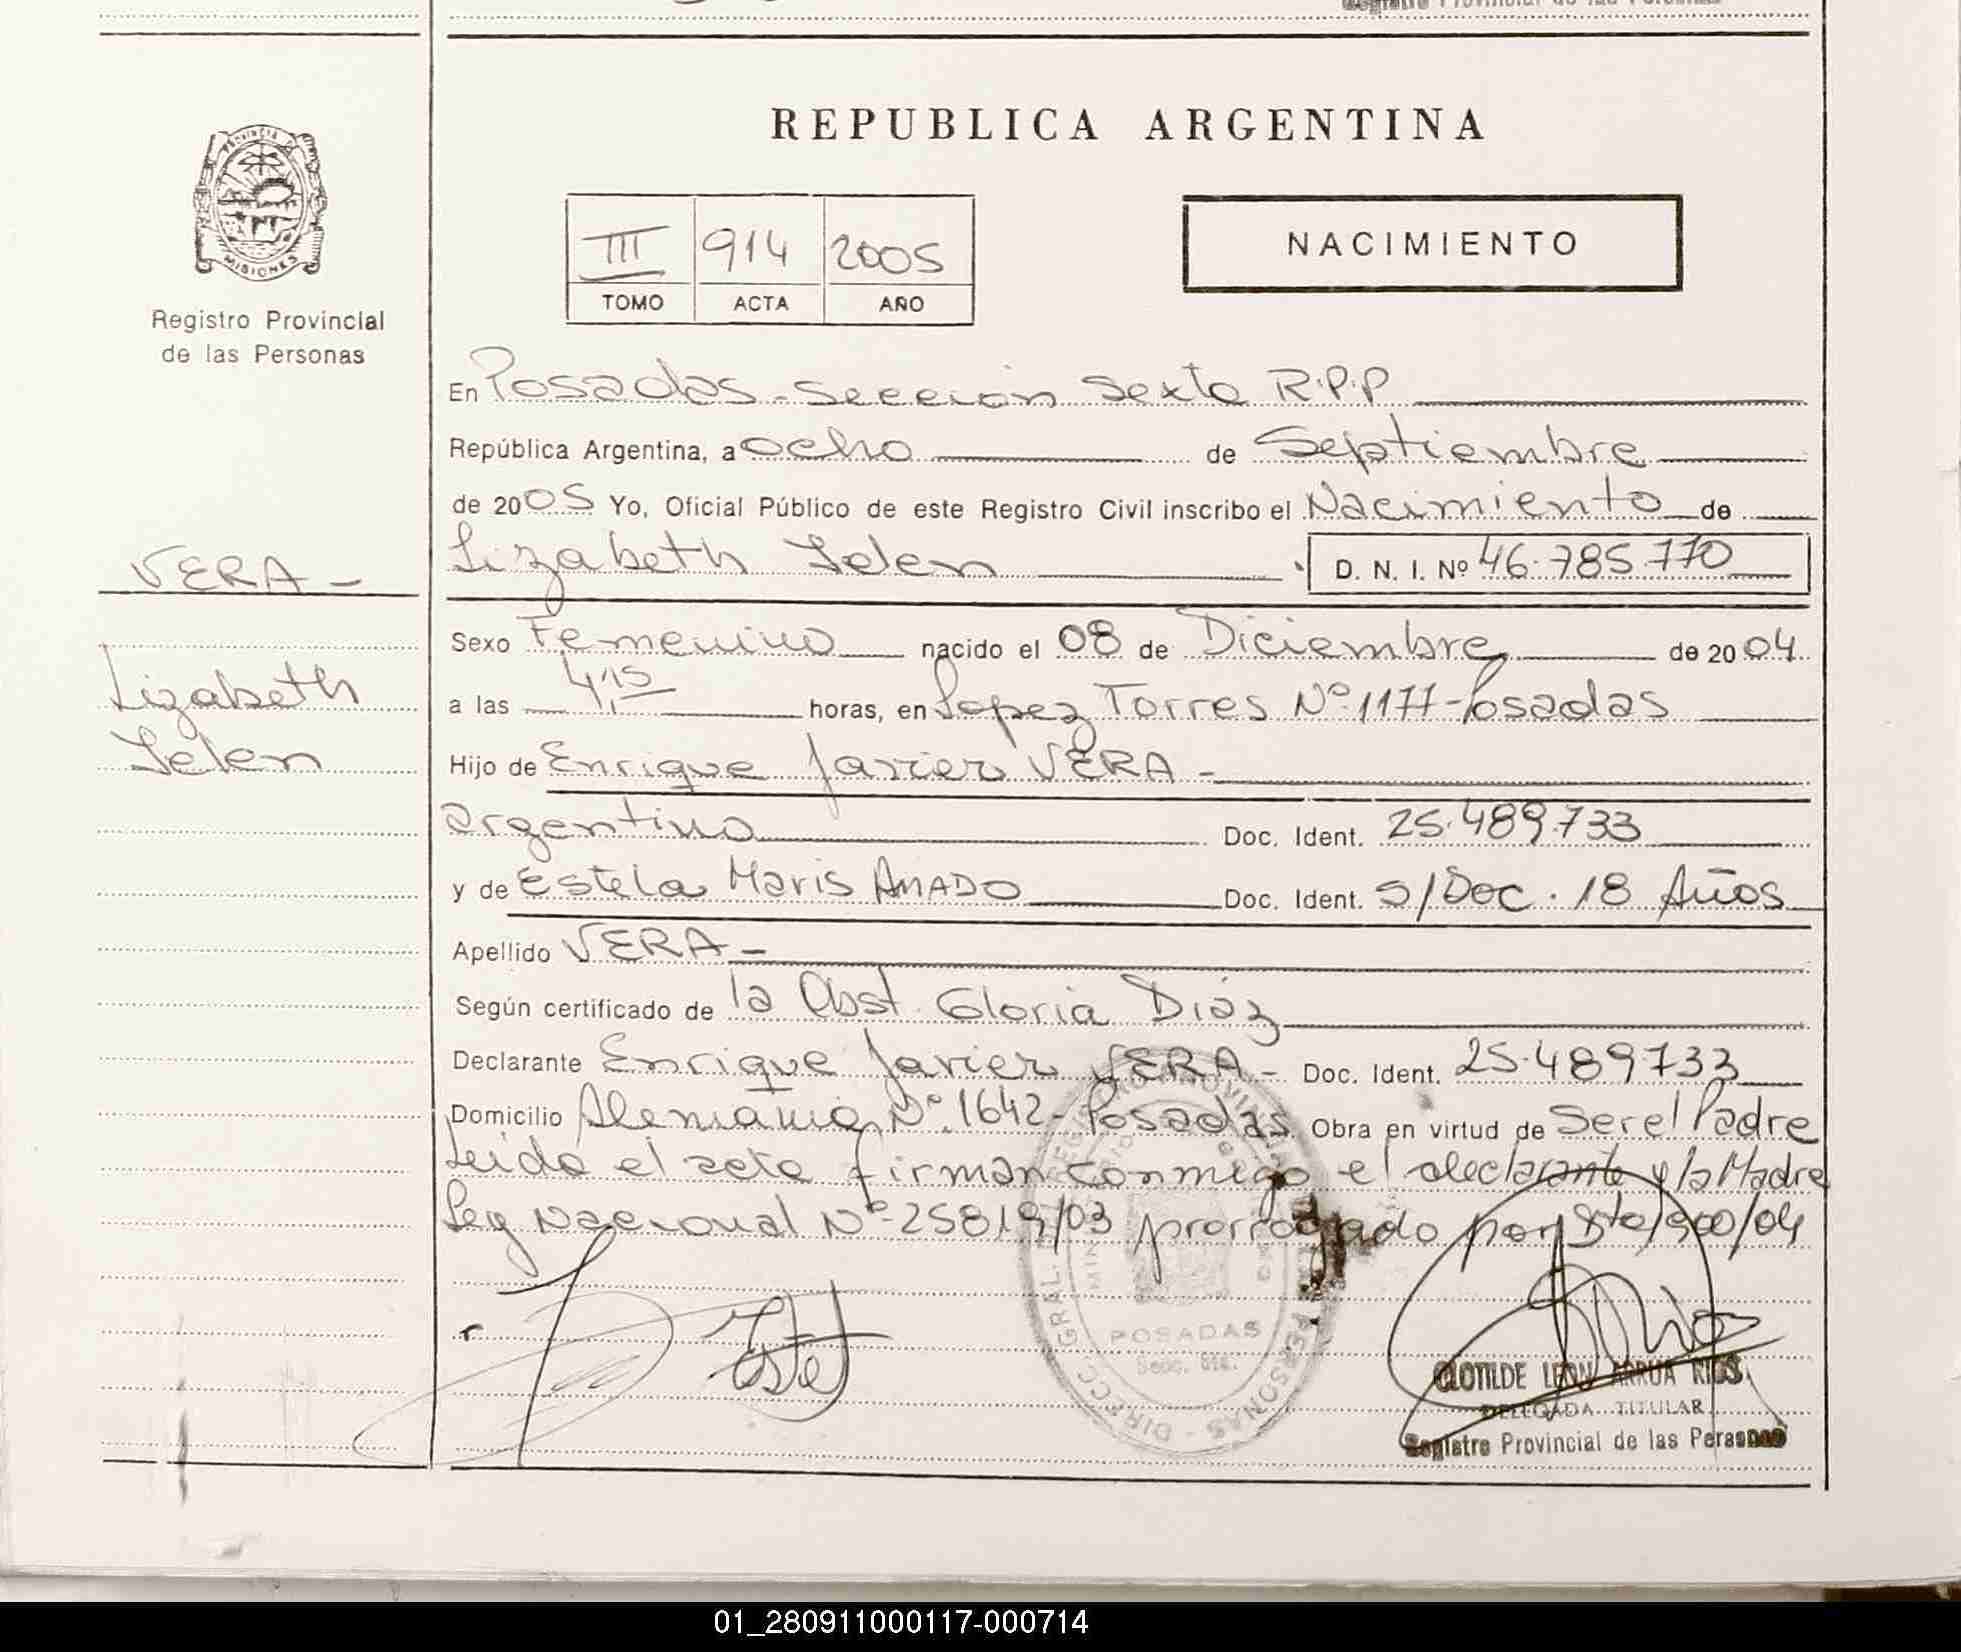 REPUBLICA ARGENTINA
PROVINCIA
MISIONES
Registro Provincial
de las Personas
III 914 2005
TOMO ACTA AÑO
NACIMIENTO
En Posadas - Sección Sexta R.P.P
República Argentina, a ocho de Septiembre
de 2005 Yo, Oficial Público de este Registro Civil inscribo el Nacimiento de
Lizabeth Jelen D. N. I. Nº 46.785.770
VERA -
Lizabeth
Jelen
Sexo Femenino nacido el 08 de Diciembre de 2004
a las 4,15 horas, en Lopez Torres Nº 1177 - Posadas
Hijo de Enrique Javier VERA -
argentino Doc. Ident. 25.489.733
y de Estela Maris AMADO Doc. Ident. S/Doc. 18 Años
Apellido VERA -
Según certificado de la Obst. Gloria Diáz
Declarante Enrique Javier VERA - Doc. Ident. 25.489733
Domicilio Alemania Nº 1642 - Posadas Obra en virtud de Ser el Padre
Leida el acta firman conmigo el declarante y la Madre
Ley Nacional Nº 25819/03 prorrogado por Dto/900/04
POSADAS
Secc. 6ta.
CLOTILDE LEON ARRUA RIOS
DELEGADA TITULAR
Registro Provincial de las Personas
01_280911000117-000714